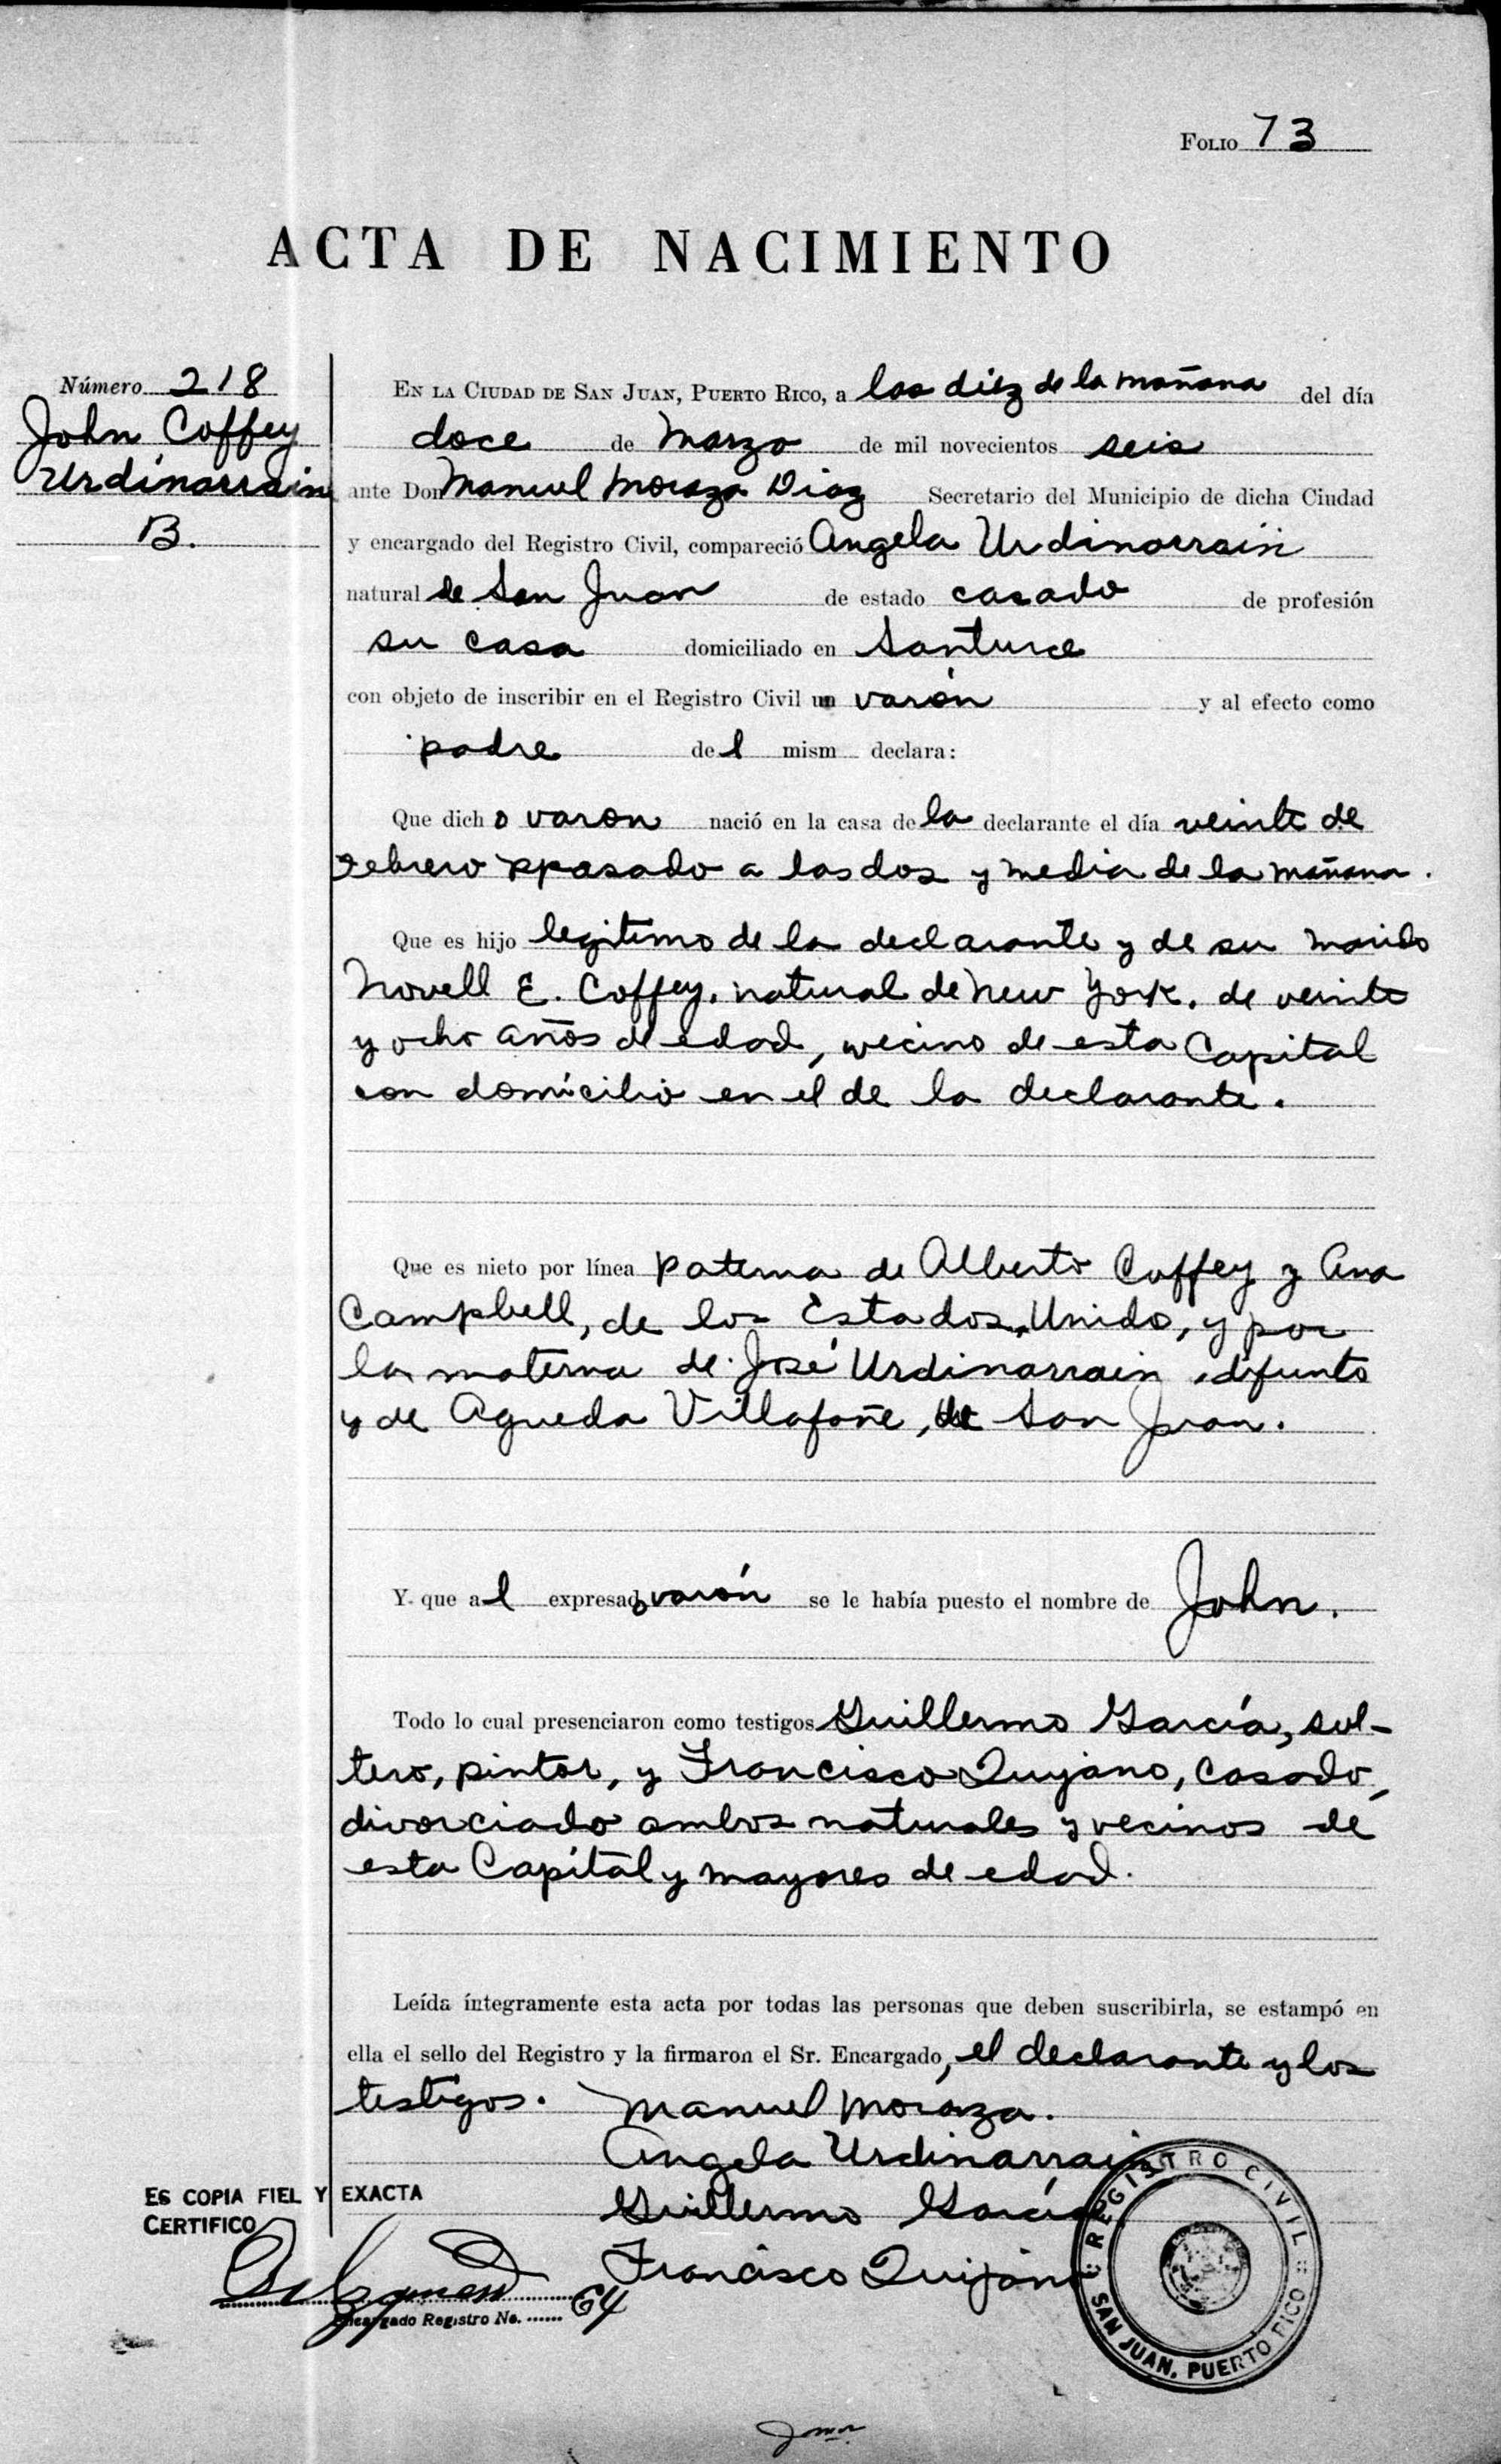 FOLIO 73
ACTA DE NACIMIENTO
Número 218
John Coffey
Urdinarrain
B.
EN LA CIUDAD DE SAN JUAN, PUERTO RICO, a las diez de la mañana del día
doce de Marzo de mil novecientos seis
ante Don Manuel Moraza Diaz Secretario del Municipio de dicha Ciudad
y encargado del Registro Civil, compareció Angela Urdinarrain
natural de San Juan de estado casado de profesión
su casa domiciliado en Santurce
con objeto de inscribir en el Registro Civil un varón y al efecto como
padre del mism declara:
Que dicho varon nació en la casa de la declarante el día veinte de
Febrero ppasado a las dos y media de la mañana.
Que es hijo legitimo de la declarante y de su marido
Novell E. Coffey, natural de New York, de veinte
y ocho años de edad, vecino de esta Capital
con domicilio en el de la declarante.
Que es nieto por línea paterna de Alberto Coffey y Ana
Campbell, de los Estados Unido, y por
la materna de José Urdinarrain, difunto
y de Agueda Villafañe, de San Juan.
Y que al expresado varón se le había puesto el nombre de John.
Todo lo cual presenciaron como testigos Guillermo García, sol-
tero, pintor, y Francisco Quijano, casado,
divorciado ambos naturales y vecinos de
esta Capital y mayores de edad.
Leída íntegramente esta acta por todas las personas que deben suscribirla, se estampó en
ella el sello del Registro y la firmaron el Sr. Encargado, el declarante y los
testigos. Manuel Moraza.
Angela Urdinarrain
Guillermo García
Francisco Quijano
ES COPIA FIEL Y EXACTA
CERTIFICO
Encargado Registro No. 64
REGISTRO CIVIL
SAN JUAN, PUERTO RICO